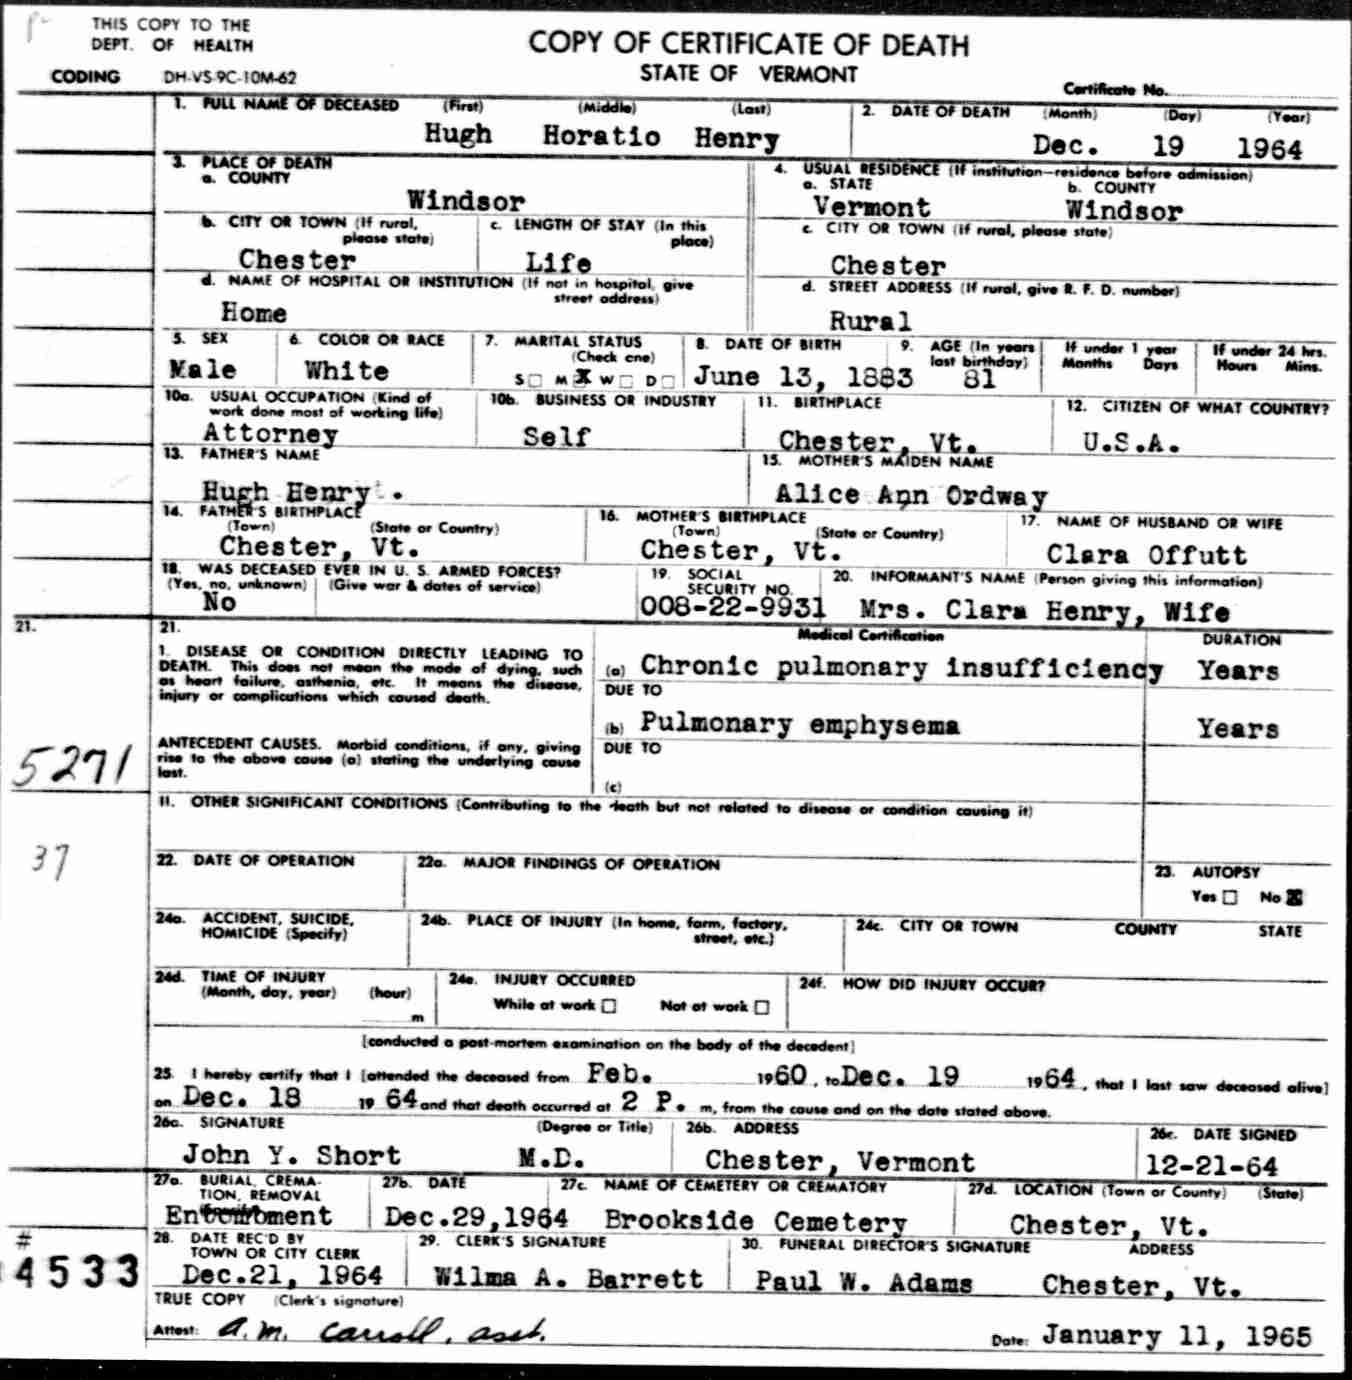 THIS COPY TO THE
DEPT. OF HEALTH
COPY OF CERTIFICATE OF DEATH
CODING DH-VS-9C-10M-62
STATE OF VERMONT
Certificate No.
1. FULL NAME OF DECEASED (First) (Middle) (Last)
Hugh Horatio Henry
2. DATE OF DEATH (Month) (Day) (Year)
Dec. 19 1964
3. PLACE OF DEATH
a. COUNTY
Windsor
4. USUAL RESIDENCE (If institution—residence before admission)
a. STATE b. COUNTY
Vermont Windsor
b. CITY OR TOWN (If rural,
please state)
Chester
c. LENGTH OF STAY (In this
place)
Life
c. CITY OR TOWN (If rural, please state)
Chester
d. NAME OF HOSPITAL OR INSTITUTION (If not in hospital, give
street address)
Home
d. STREET ADDRESS (If rural, give R. F. D. number)
Rural
5. SEX
Male
6. COLOR OR RACE
White
7. MARITAL STATUS
(Check one)
S☐ M☒ W☐ D☐
8. DATE OF BIRTH
June 13, 1883
9. AGE (In years
last birthday)
81
If under 1 year
Months Days
If under 24 hrs.
Hours Mins.
10a. USUAL OCCUPATION (Kind of
work done most of working life)
Attorney
10b. BUSINESS OR INDUSTRY
Self
11. BIRTHPLACE
Chester, Vt.
12. CITIZEN OF WHAT COUNTRY?
U.S.A.
13. FATHER'S NAME
Hugh Henry .
15. MOTHER'S MAIDEN NAME
Alice Ann Ordway
14. FATHER'S BIRTHPLACE
(Town) (State or Country)
Chester, Vt.
16. MOTHER'S BIRTHPLACE
(Town) (State or Country)
Chester, Vt.
17. NAME OF HUSBAND OR WIFE
Clara Offutt
18. WAS DECEASED EVER IN U. S. ARMED FORCES?
(Yes, no, unknown) (Give war & dates of service)
No
19. SOCIAL
SECURITY NO.
008-22-9931
20. INFORMANT'S NAME (Person giving this information)
Mrs. Clara Henry, Wife
21.
21.
Medical Certification
DURATION
1. DISEASE OR CONDITION DIRECTLY LEADING TO
DEATH. This does not mean the mode of dying, such
as heart failure, asthenia, etc. It means the disease,
injury or complications which caused death.
(a) Chronic pulmonary insufficiency Years
DUE TO
(b) Pulmonary emphysema Years
5271
ANTECEDENT CAUSES. Morbid conditions, if any, giving
rise to the above cause (a) stating the underlying cause
last.
DUE TO
(c)
11. OTHER SIGNIFICANT CONDITIONS (Contributing to the death but not related to disease or condition causing it)
37
22. DATE OF OPERATION
22a. MAJOR FINDINGS OF OPERATION
23. AUTOPSY
Yes ☐ No ☒
24a. ACCIDENT, SUICIDE,
HOMICIDE (Specify)
24b. PLACE OF INJURY (In home, farm, factory,
street, etc.)
24c. CITY OR TOWN COUNTY STATE
24d. TIME OF INJURY
(Month, day, year) (hour)
m
24e. INJURY OCCURRED
While at work ☐ Not at work ☐
24f. HOW DID INJURY OCCUR?
[conducted a post-mortem examination on the body of the decedent]
25. I hereby certify that I [attended the deceased from Feb. 1960, to Dec. 19 1964, that I last saw deceased alive]
on Dec. 18 19 64 and that death occurred at 2 P. m, from the cause and on the date stated above.
26a. SIGNATURE (Degree or Title)
John Y. Short M.D.
26b. ADDRESS
Chester, Vermont
26c. DATE SIGNED
12-21-64
27a. BURIAL, CREMA-
TION, REMOVAL
Entombment
27b. DATE
Dec.29,1964
27c. NAME OF CEMETERY OR CREMATORY
Brookside Cemetery
27d. LOCATION (Town or County) (State)
Chester, Vt.
#
4533
28. DATE REC'D BY
TOWN OR CITY CLERK
Dec.21, 1964
29. CLERK'S SIGNATURE
Wilma A. Barrett
30. FUNERAL DIRECTOR'S SIGNATURE ADDRESS
Paul W. Adams Chester, Vt.
TRUE COPY (Clerk's signature)
Attest: A. M. Carroll, asst.
Date: January 11, 1965